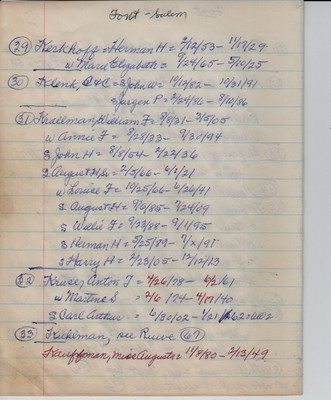 Font - Salem
(29) Kerkhoff = Herman H = 2/12/53 - 11/17/29
w Marie Elizabeth = 9/24/65 - 5/10/25
(30) Klenk, C & C = S John W = 10/12/82 - 10/31/91
S Jurgen P = 2/24/86 - 9/10/86
(31) Krallman, William F = 9/8/31 - 3/5/05
w Annie F = 8/28/33 - 9/30/94
S John H = 8/8/54 - 2/22/36
S August H, Sr = 2/5/66 - 6/2/21
w Louise F = 10/25/66 - 6/26/41
S August H = 9/6/85 - 7/24/09
S Willie F = 9/23/88 - 9/1/95
S Herman H = 9/25/89 - 7/x/91
S Harry H = 2/23/05 - 12/12/13
(32) Kruse, Anton F = 4/26/78 - 6/2/61
w Martine S = 2/6/74 - 4/17/40
S Carl Arthur = 6/30/02 - 1/21/62 = WW2
(33) Kuhlman, see Ruwe (67)
Kauffman, Miss Augusta = 11/8/80 - 2/13/49